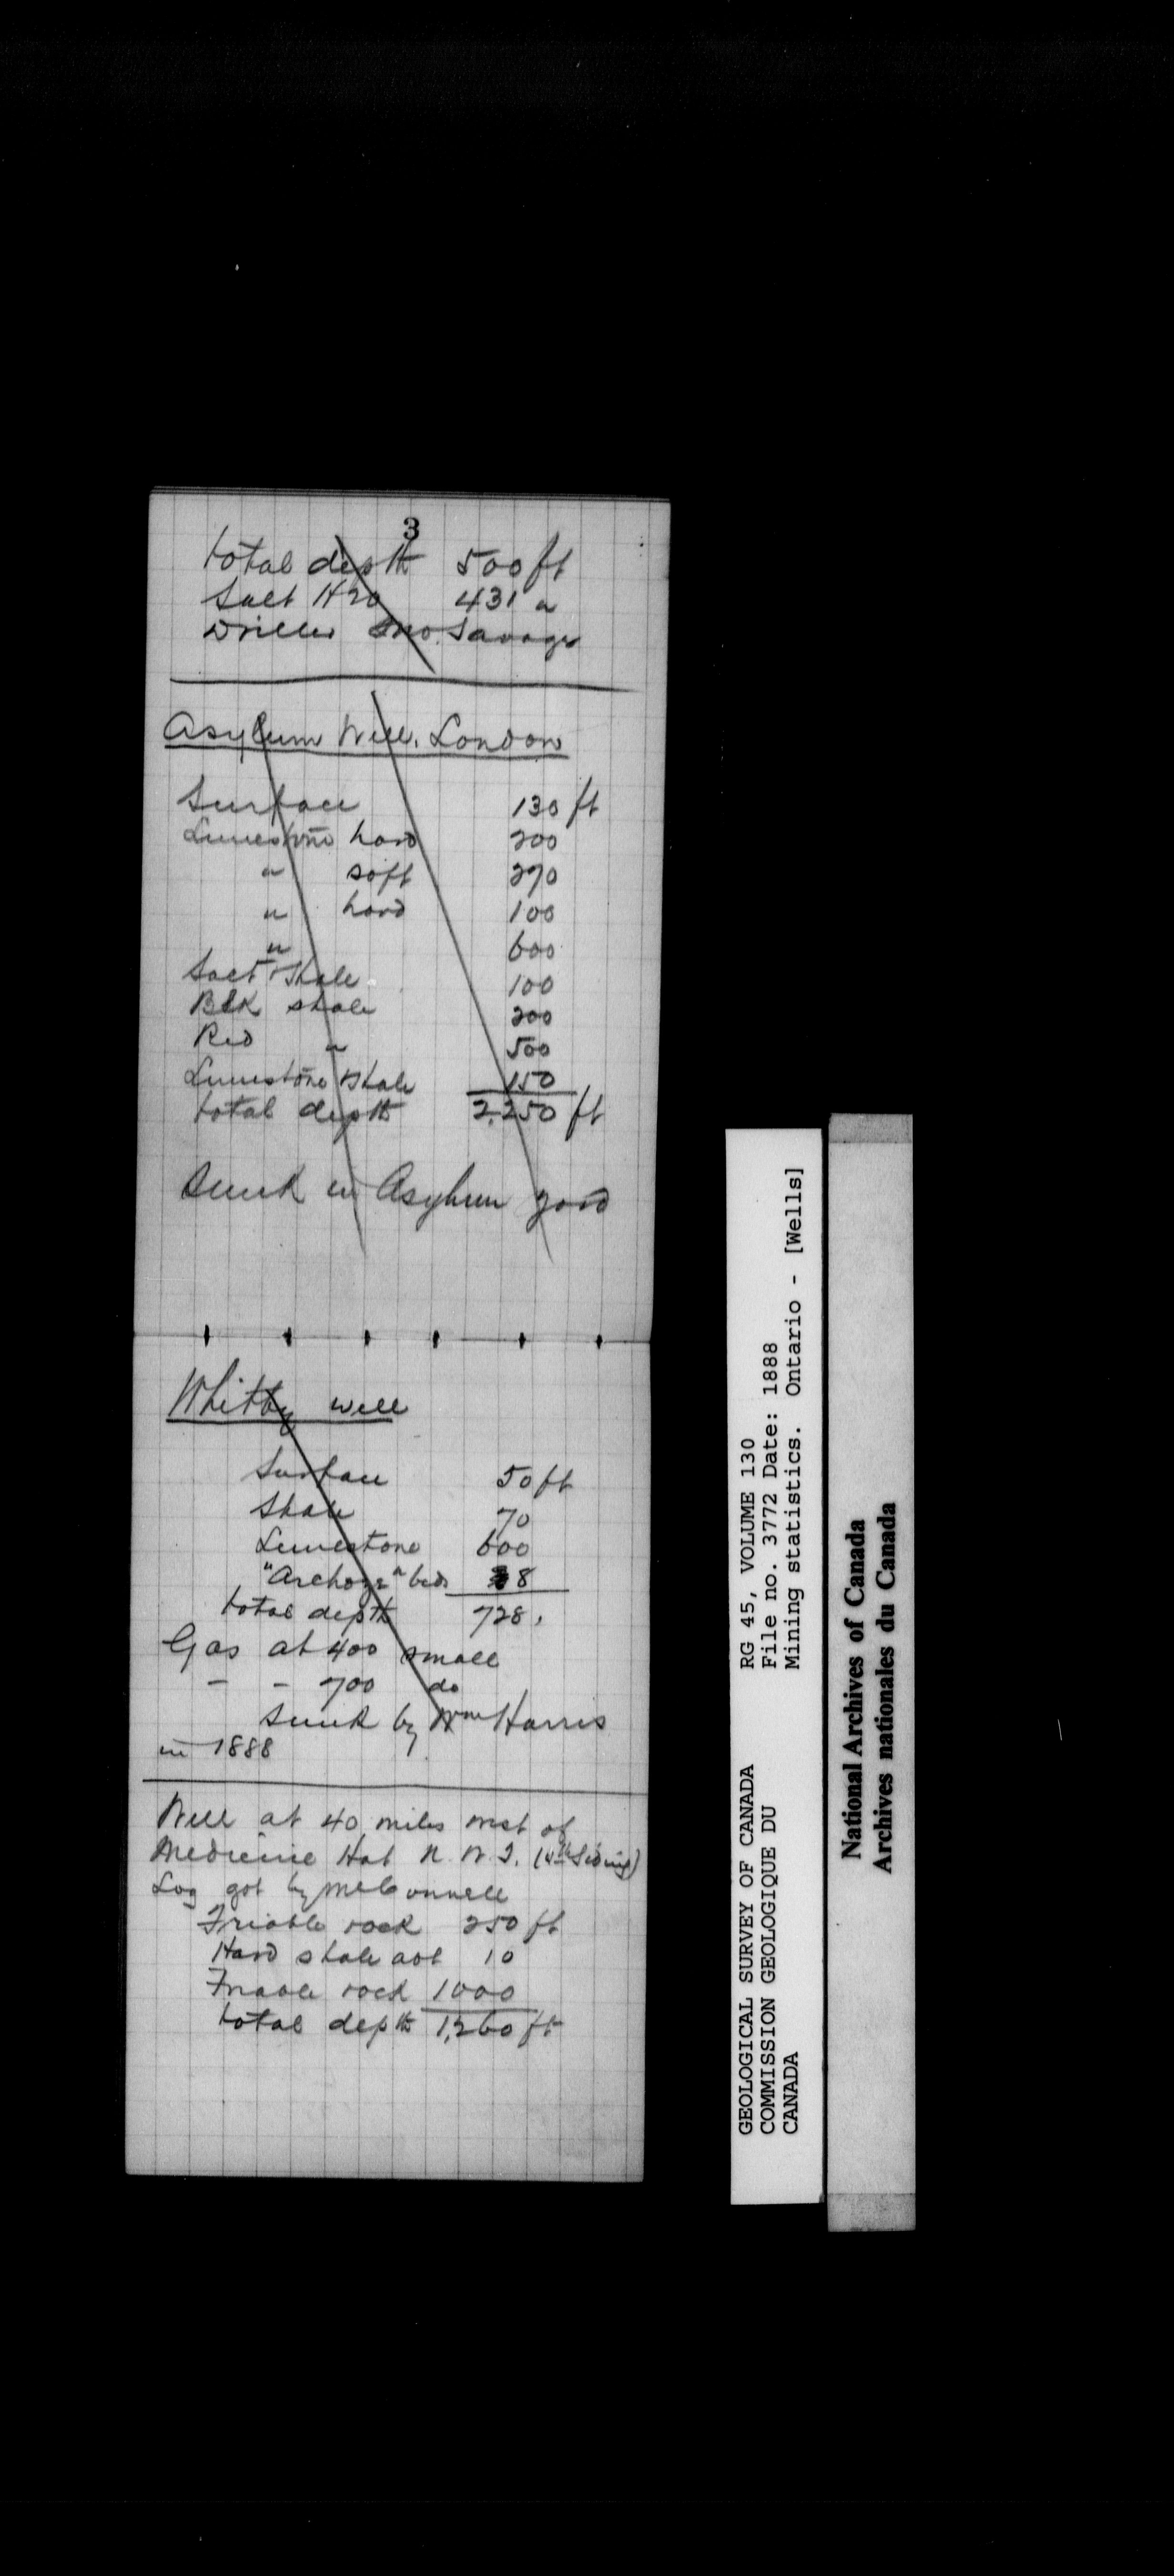 3
total depth 500 ft
Salt H20 431 "
Driller Jno. Savage
Asylum Well. London
Surface 130 ft
Limestone hard 200
" soft 270
" hard 100
" 600
Salt + Shale 100
Blk shale 200
Red " 500
Limestone + Shale 150
total depth 2,250 ft
Sunk in Asylum yard
Whitby well
Surface 50 ft
Shale 70
Limestone 600
"Archaean" beds 8
total depth 728.
Gas at 400 small
- - 700 do
Sunk by Wm Harris
in 1888
Well at 40 miles west of
Medicine Hat N. W. T. (4th Siding)
Log got by McConnell
Friable rock 250 ft
Hard shale abt 10
Friable rock 1000
total depth 1,260 ft
GEOLOGICAL SURVEY OF CANADA
COMMISSION GEOLOGIQUE DU
CANADA
RG 45, VOLUME 130
File no. 3772 Date: 1888
Mining statistics. Ontario - [Wells]
National Archives of Canada
Archives nationales du Canada